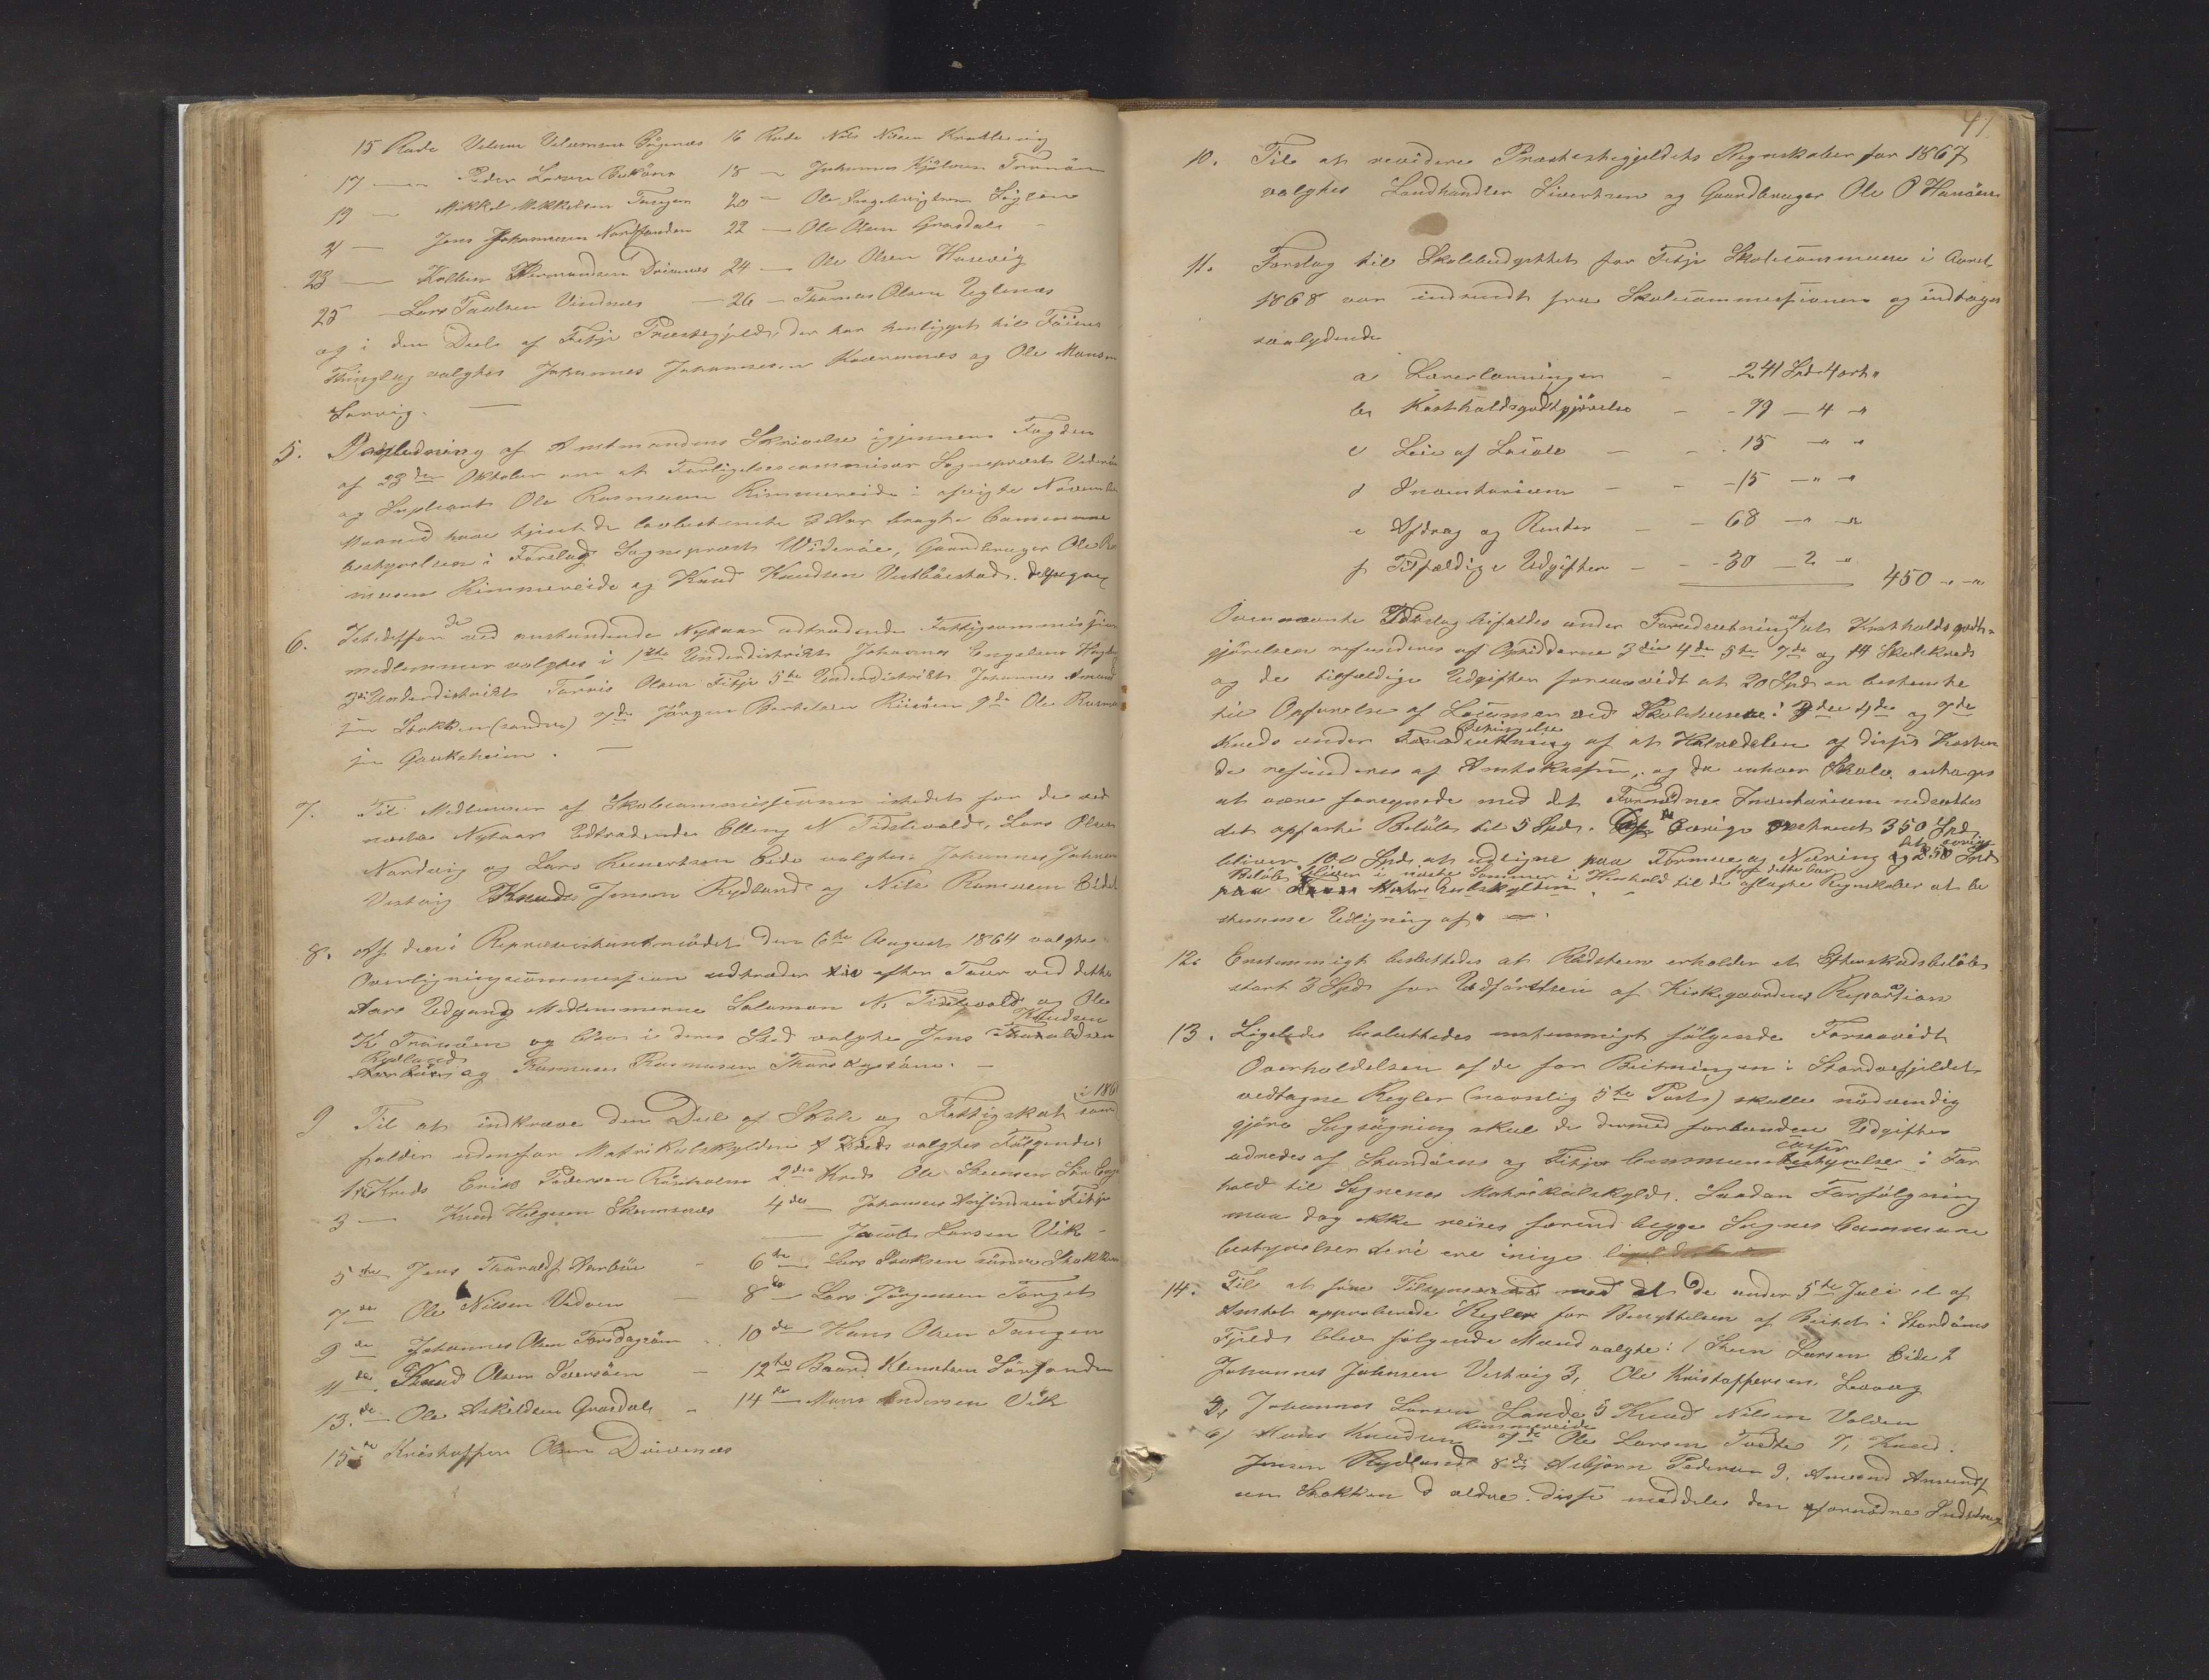 15 Rode Villum Villumsen Vognæs 16 Rode Nils Nilsen Kratlevig
17 — Peder Larsen 18 — Johannes Kjelsen Tranöen
19 — Mikkel Mikkelsen Tangen 20 — Ole Ingebrigtsen Siglen
21 — Jens Johannesen Nordfonden 22 — Ole Olsen Grosdale
23 — Hermundsen Drivenæs 24 — Ole Olsen Husevig
25 — Lars Paulsen Vindnæs — 26 — Thomas Olsen Uglenæs
og i den Deel af Fitje Præstegjeld, der har henligget til Föiens
Thinglag valgtes Johannes Johannesen Koærnenæs og Ole Monsen
Sørvig. —
5. I Anledning af Amtmandens Skrivelse igjennem Fogden
af 23de Oktober om at Forligelsescommissær Sognepræst Videröe
og Supleant Ole Rasmusen Rimmereide i afvigte November
Maaned have tjent de lovbestemte 3 Aar bragte Commune
bestyrelsen i Forslag Sognepræst Wideröe, Gaardbruger Ole Ras
musen Rimmereide og Knud Knudsen Vestböestad.
6. Istedetfor de ved anstundende Nytaar udtrædende Fattigcommissions
medlemmer valgtes i 1ste Underdistrikt Johannes Engelsen
3die Underdistrikt Olsen Fitje 5te Underdistrikt Johannes Amund
sen Stokken (søndre) 7de Jörgen Bertelsen 9de Ole Rasmus
sen Gaukeheim. —
7. Til Medlemmer af Skolecommissionen istedet for de ved
næste Nytaar Udtrædende Elling N Tidslevold, Lars Olsen
Nordvig og Lars Eide valgtes: Johannes Johnsen
Vestvig Knud Jensen Rydland og Nils Rasmusen Eide
8. Af den i Repræsentantmödet den 6te August 1864 valgte
Overligningscommission udtræder efter Tour ved dette
Aars Udgang Medlemmerne Salamon N. Tidslevold og Ole
K. Tranöen og blev i deres Sted valgte Jens Knudsen
Rydland og Rasmus Rasmusen
9 Til at indkræve den Deel af Skole og Fattigskat som i 186
falder udenfor Matrikulskylden valgtes Fölgende:
1ste Kreds Erik Pedersen Röixholm 2den Kreds Ole Steensen
3 — Knud Helgesen 4de — Johannes Fitje
— Jacob Larsen Vik —
5te Jens Tharalds. Aarbör — 6te — Lars söndre Stokken
7de Ole Nilsen Vedoen — 8de — Lars Jörgensen Torget
9de Johannes Olsen 10de — Hans Olsen Tangen
11de Knud Olsen Ivarsöen — 12te Baard Klemetsen Sörfonden
13de Ole Askildsen Grosdale — 14de — Mons Andersen Vik
15de Kristoffer Olsen Drivenæs
41
10. Til at revidere Præstestegjeldets Regnskaber for 1867
valgtes Landhandler Sivertsen og Gaardbruger Ole O Hanöen
11. Forslag til Skolebudgettet for Fitje Skolecommune i Aaret
1868 var indsendt fra Skolecommissionen og indtages
saalydende
a Lærerlønninger — 241 Spd 4 ort "
b Kostholdsgodtgjörelse — - 79 — 4 — "
c Leie af Locale — - 15 — " "
d Inventarium — - - 15 — " — "
e Afdrag og Renter — - 68 — " — "
f Tilfældige Udgifter — - - 30 — 2 — " 450 — " — "
Ovennævnte Forslag bifaldes under Forudsætning af at Kostholdsgodt-
gjörelsen refunderes af Opsidderne 3die 4de 5te 7de og 14 Skolekreds
og de tilfældige Udgifter forsaavidt at 20 Spd er bestemte
til Opförelse af ved Skolehusene i 3die 4de og 7de
Kreds under Betingelse af at Halvedelen af disse Koster
de refunderes af Amtskassen, og da enhver Skole antages
at være forsynede med det Fornödne Inventarium nedsættes
det opførte Belöb til 5 Spd. De övrige 350 Spd
bliver 100 Spd at udligne paa Formue og Næring og 250 Spd det övrige
Belöb bliver i næste Sommer i Henhold til de for dette Aar aflagte Regnskaber at be
stemme Udligning af. —
12. Enstemmigt besluttedes at Rödsteen erholder et Efterskudsbelöb
stort 3 Spd for Udförelsen af Kirkegaardens Reparation
13. Ligeledes besluttedes enstemmigt fölgende Forsaavidt
Overholdelsen af de for Beitningen i Stordefjeldet
vedtagne Regler (navnlig 5te Post) skulle nödvendig
gjöre Sagsögning skal de dermed forbundne Udgifter
udredes af Stordöens og Fitje Communecasser i For
hold til Sognenes Matrikulskyld. Saadan Forfölgning
maa dog ikke reises forend begge Sognes Commune
bestyrelser deri ere enige
14. Til at före Tilsyn med at de under 5te Juli d. af
Amtet approberede Regler for Benyttelsen af Beitet i Stordöens
Fjeld blev følgende Mænd valgte: 1 Steen Larsen Eide 2
Johannes Johnsen Vestvig 3, Ole Kristoffersen Levaag
4, Johannes Larsen Lande 5 Knud Nilsen Valden
6/ Hans Knudsen Rimmereide 7de Ole Larsen Tvedte 7, Knud
Jensen Rydland 8de Asbjørn Pedersen 9, Amund Amunds
sen Stokken d ældre. Disse meddeles den fornödne Instrux